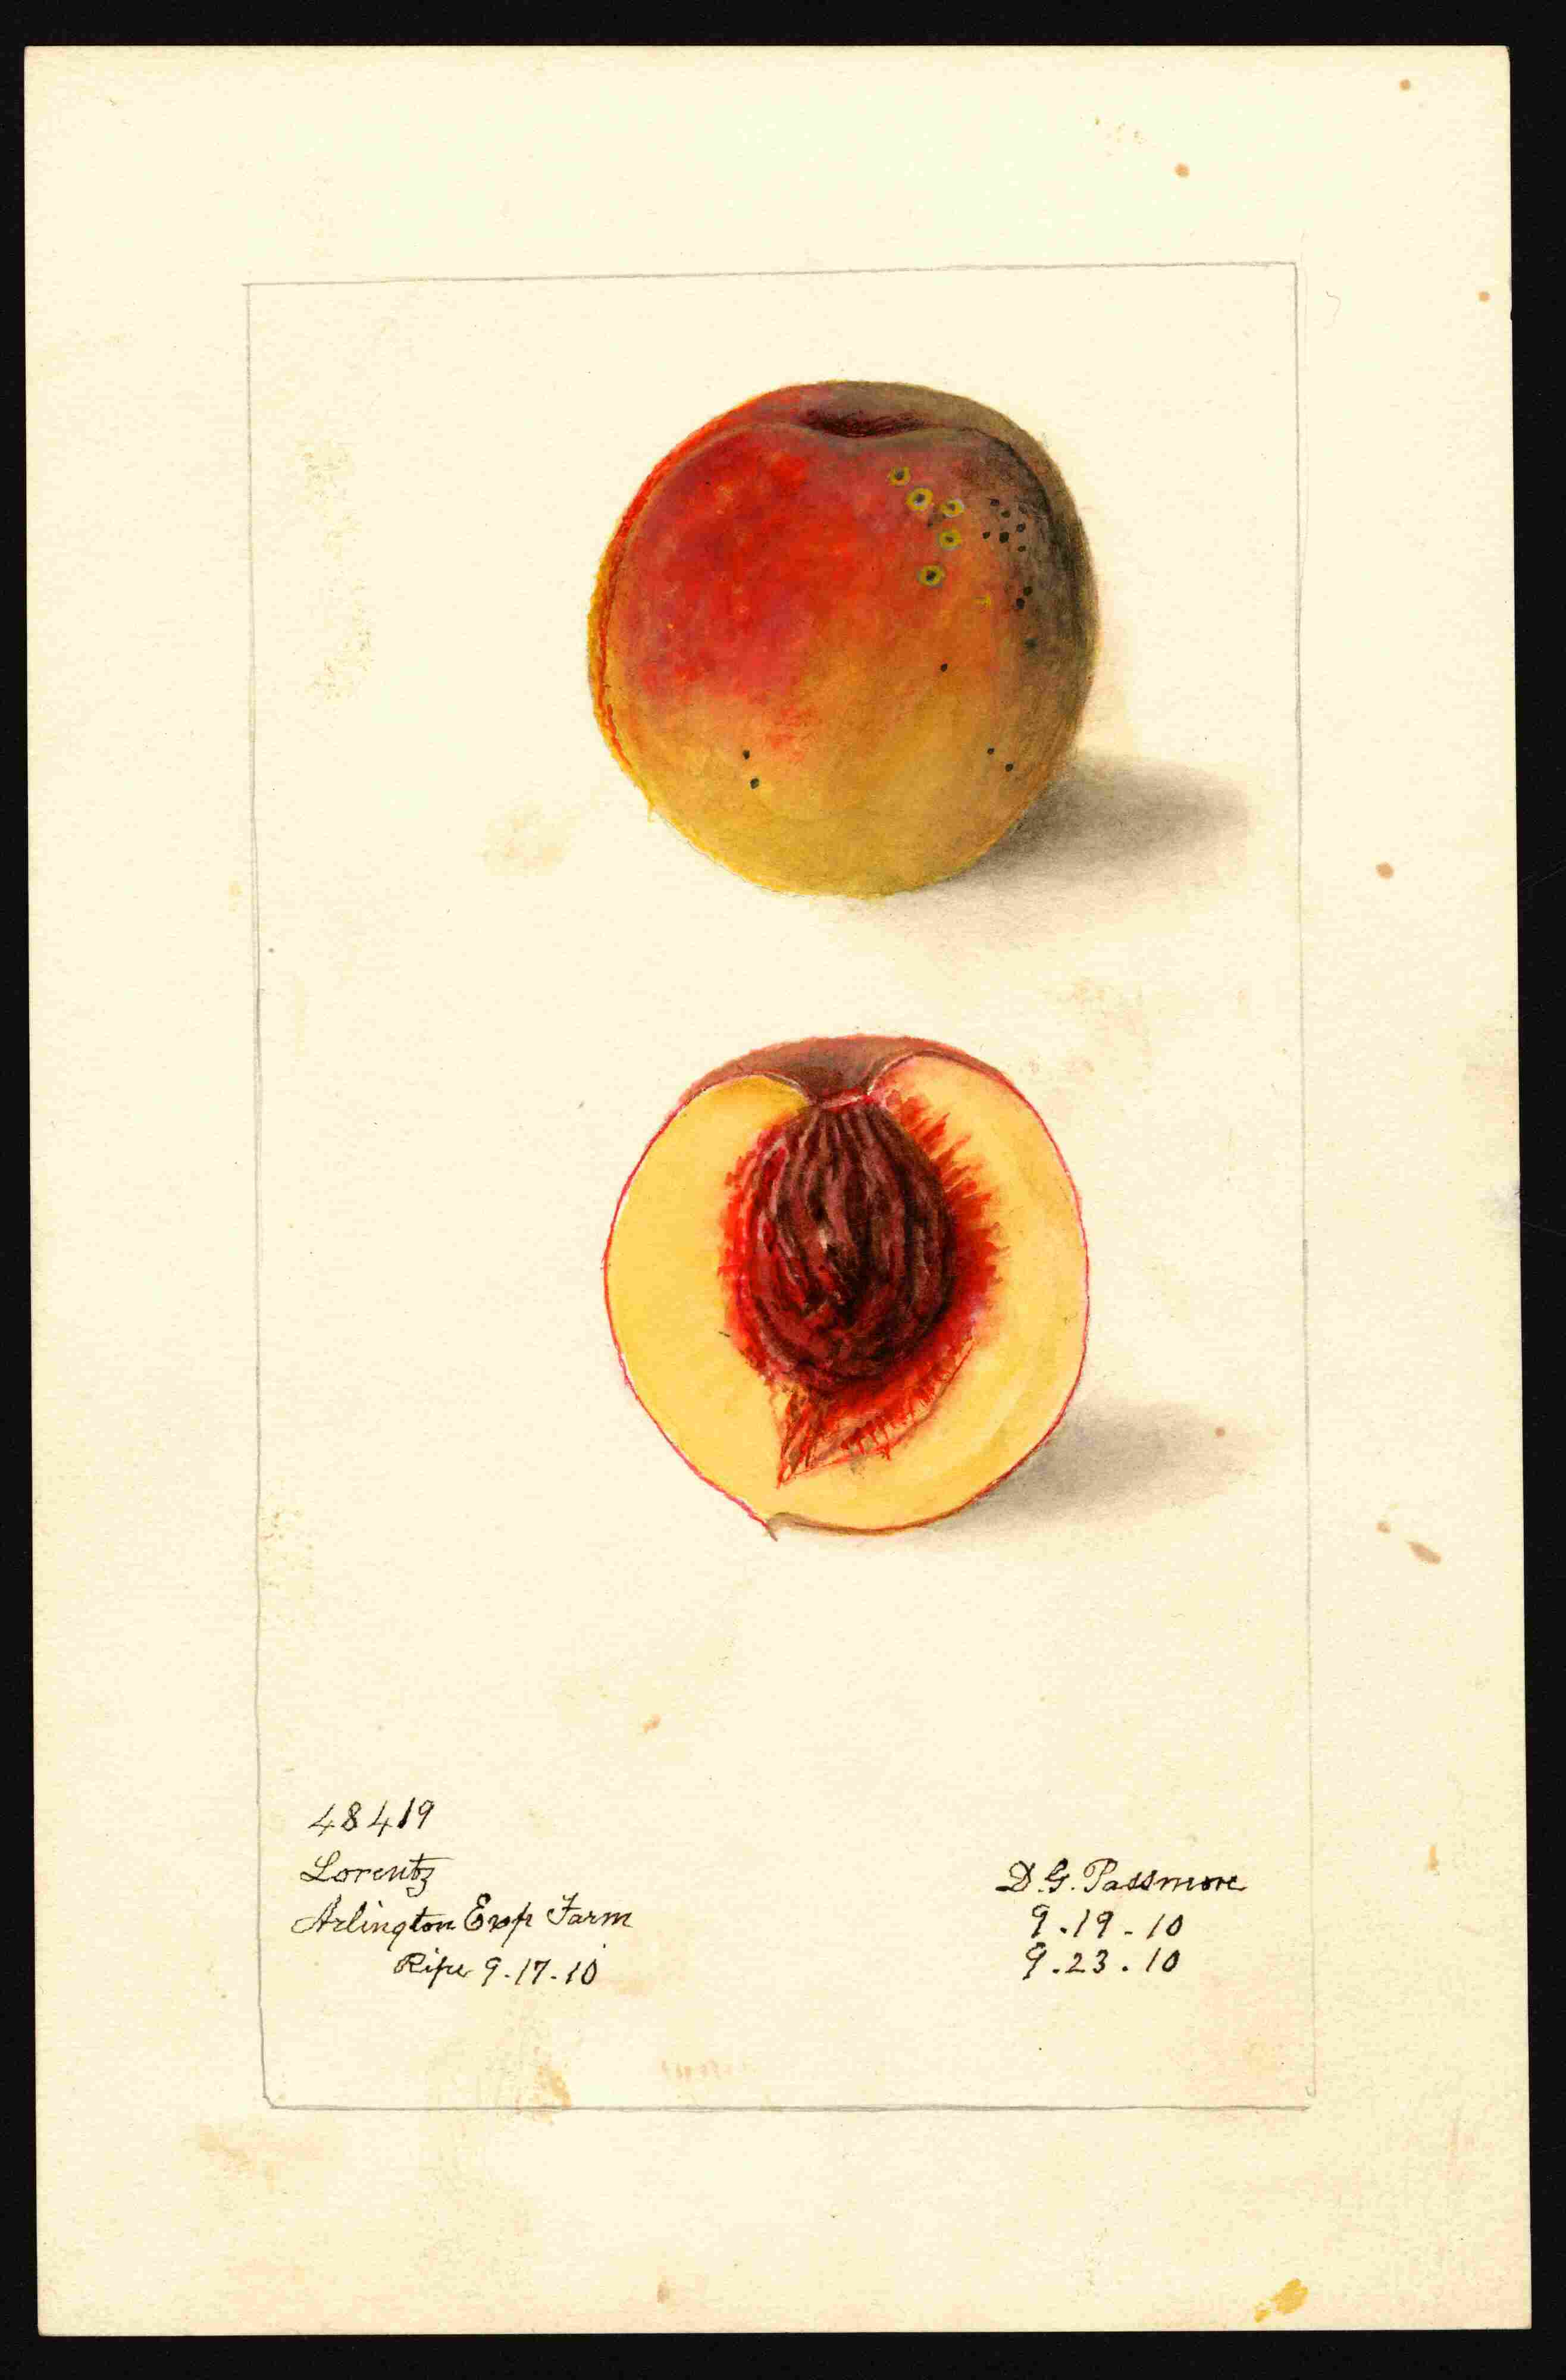 48419
Lorentz
Arlington Exp Farm
Ripe 9.17.10
D.G. Passmore
9.19.10
9.23.10